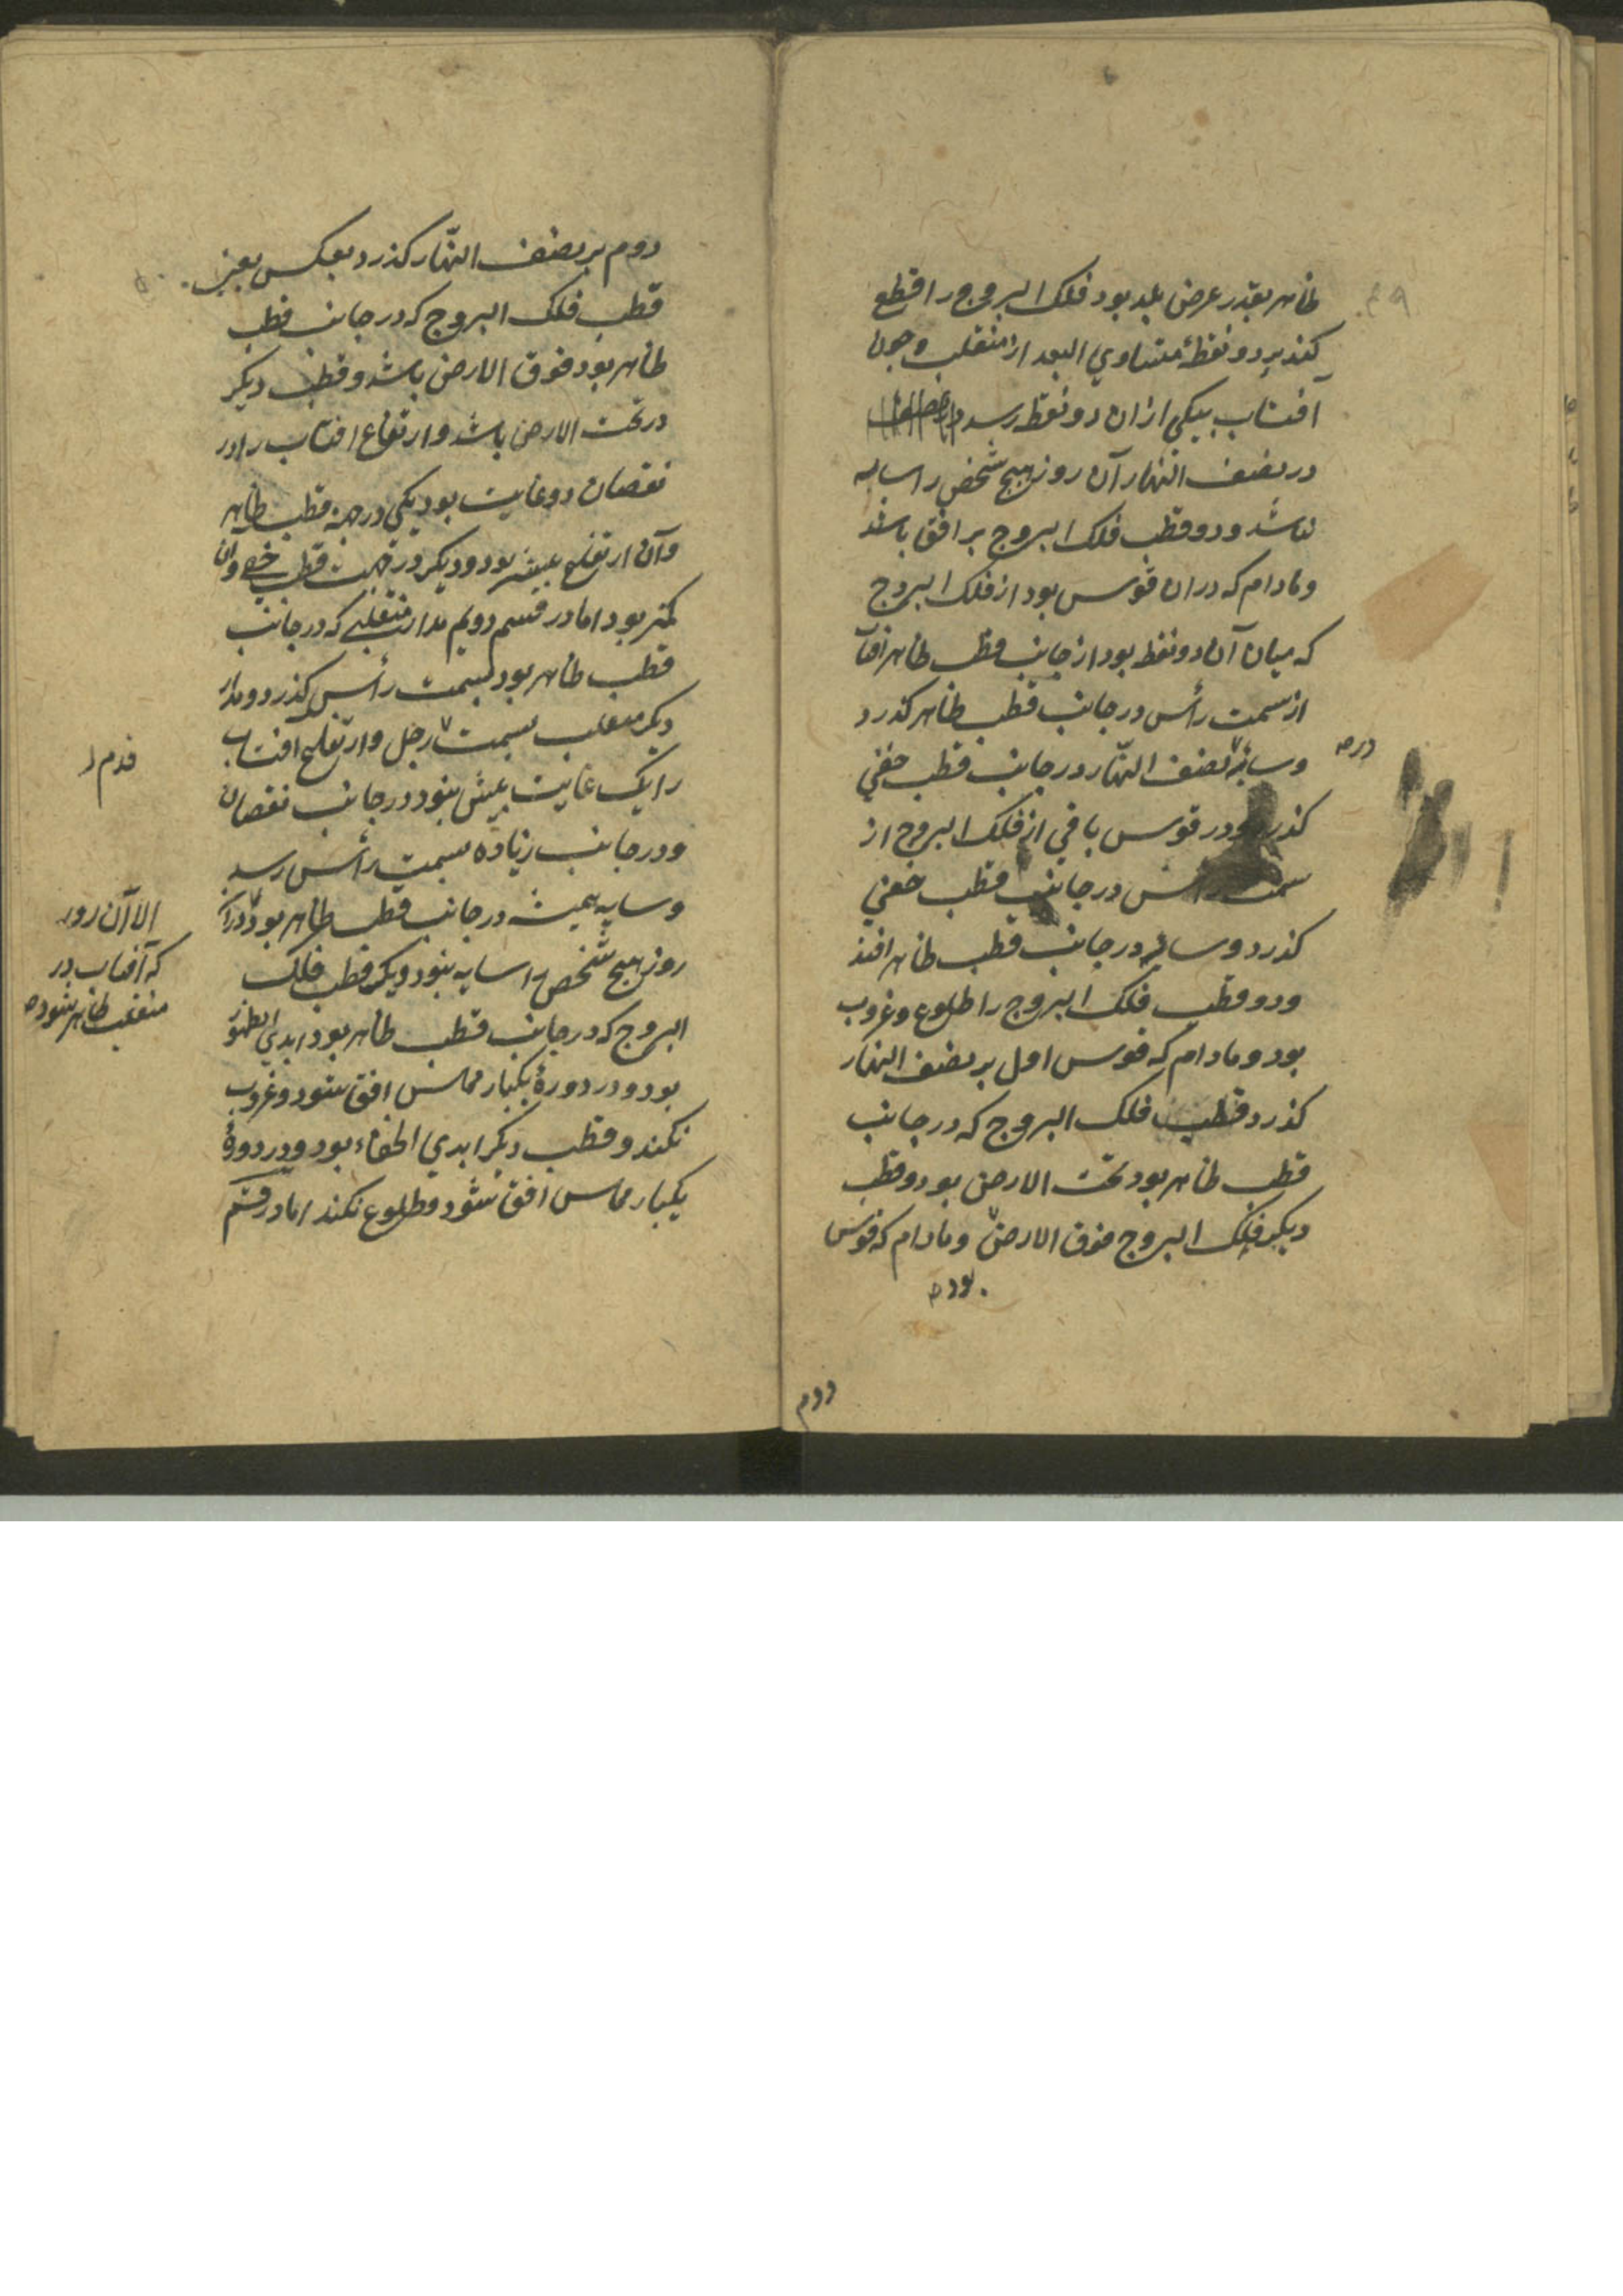 ظاهر بقدر عرض بلد بود فلک البروج را قطع
کند بر دو نقطهٔ متساوي البعد از منقلب و چون
آفتاب بیکی ازان دو نقطه رسد
در نصف النهار آن روز هیچ شخص را سایه
نباشد و دو قطب فلک البروج بر افق باشد
و مادام که دران قوس بود از فلک البروج
که میان آن دو نقطه بود از جانب قطب ظاهر افتا
از سمت رأس در جانب قطب ظاهر کذرد
و سایهٔ نصف النهار در جانب قطب خفي
کذرد و در قوس باقي از فلک البروج از
سمت رأس در جانب قطب خفي
کذرد و سایه در جانب قطب ظاهر افتد
و دو قطب فلک البروج را طلوع و غروب
بود و مادام که قوس اول بر نصف النهار
کذرد قطب فلک البروج که در جانب
قطب ظاهر بود تحت الارض بود و قطب
دیکر فلک البروج فوق الارض و مادام که قوس
بود
دوم
دوم بر نصف النهار کذرد بعکس یعنی
قطب فلک البروج که در جانب قطب
ظاهر بود فوق الارض باشد و قطب دیکر
در تحت الارض باشد و ارتفاع افتاب را در
نقصان دو غایت بود یکی در جهة قطب ظاهر
و آن ارتفاع بیشتر بود و دیکر در جهت قطب خفي و آن
کمتر بود اما در قسم دویم مدار منقلبي که در جانب
قطب ظاهر بود بسمت رأس کذرد و مدار
دیکر منقلب بسمت رجل و ارتفاع آفتاب
را یک غایت بیش نبود در جانب نقصان
و در جانب زیاده بسمت رأس رسد
و سایه همیشه در جانب قطب ظاهر بود و دران
روز هیچ شخص را سایه نبود و یک قطب فلک
البروج که در جانب قطب ظاهر بود ابدي الظهور
بود و در دورهٔ یکبار مماس افق شود و غروب
نکند و قطب دیکر ابدي الخفاء بود و در دورهٔ
یکبار مماس افق شود و طلوع نکند اما در قسم
الا آن روز
که آفتاب در
منقلب ظاهر بود